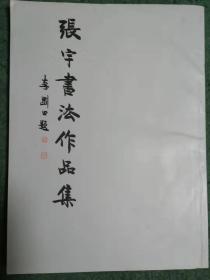 張宇書法作品集
李剛田題